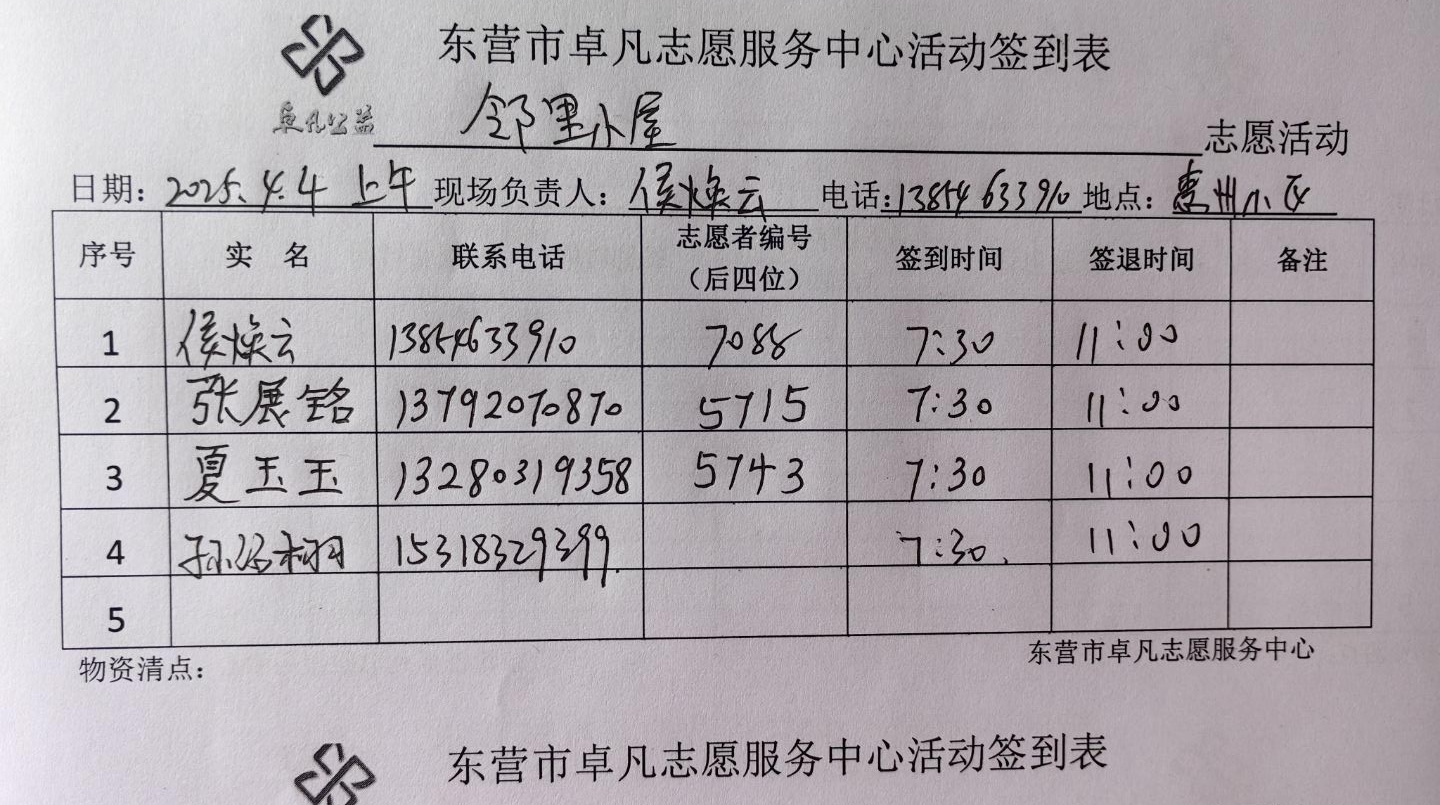 东营市卓凡志愿服务中心活动签到表
卓凡公益
邻里小屋 志愿活动
日期：2025.4.4 上午 现场负责人：侯焕云 电话：13854633910 地点：惠州小区
序号 实 名 联系电话 志愿者编号（后四位） 签到时间 签退时间 备注
1 侯焕云 13854633910 7088 7:30 11:00
2 张展铭 13792070870 5715 7:30 11:00
3 夏玉玉 13280319358 5743 7:30 11:00
4 孙 栩 15318329399 7:30 11:00
5
物资清点： 东营市卓凡志愿服务中心
东营市卓凡志愿服务中心活动签到表